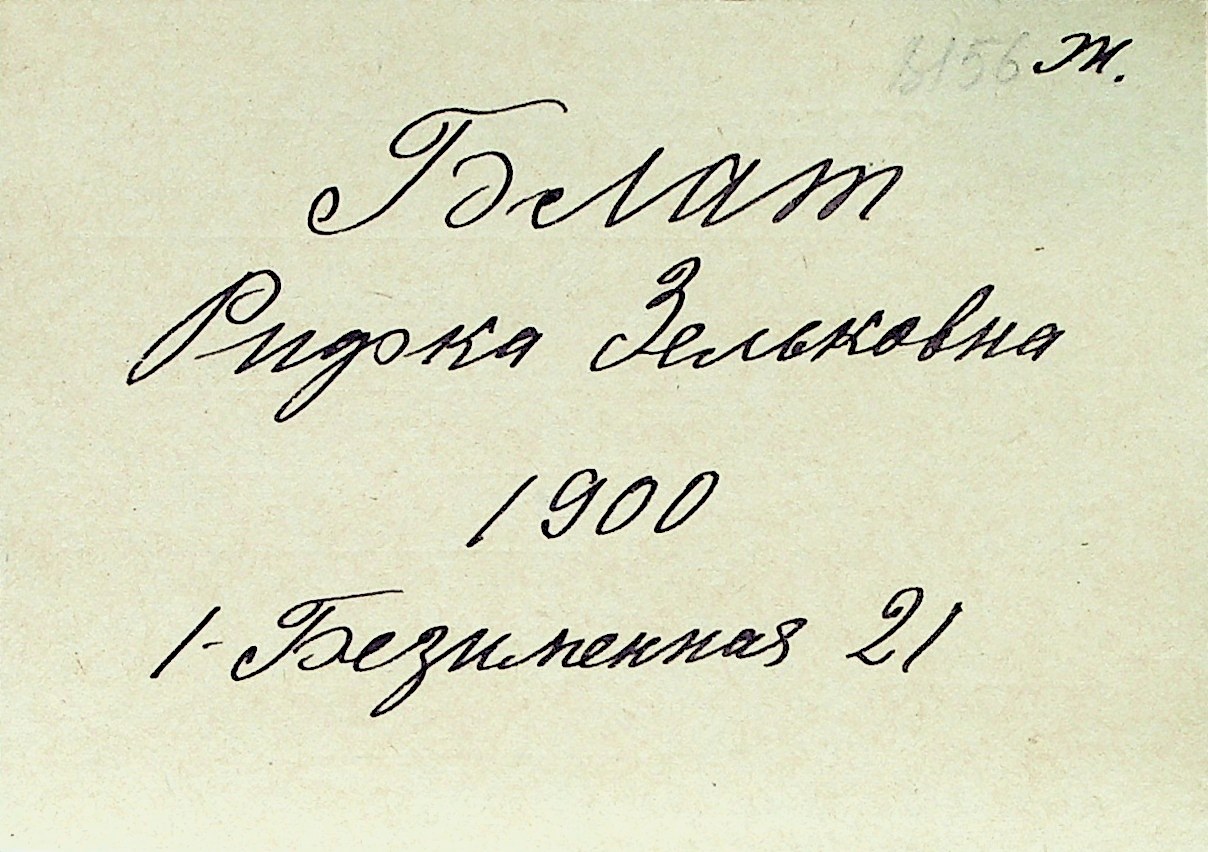 ж.
Блат
Рифка Зельковна
1900
1-Безименная 21